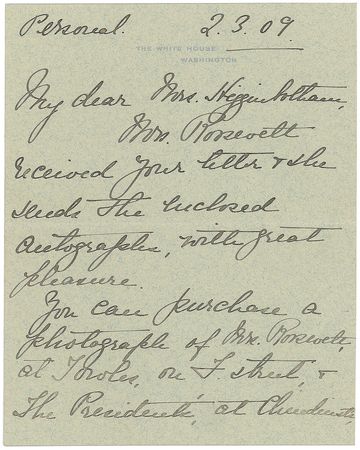 Personal. 2.3.09.
THE WHITE HOUSE
WASHINGTON
My dear Mrs. Higginbotham,
Mrs. Roosevelt
received your letter & she
sends the enclosed
autographs, with great
pleasure.
You can purchase a
photograph of Mrs. Roosevelt,
at on F. street, &
The Presidents', at